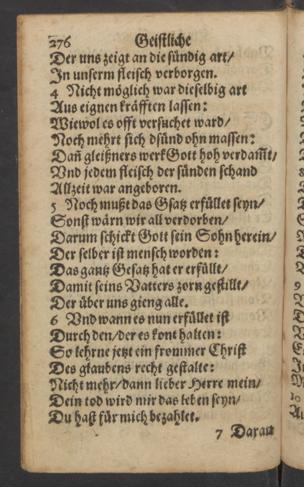 276 Geistliche
Der uns zeigt an die sündig art/
In unserm fleisch verborgen.
4 Nicht möglich war dieselbig art
Aus eignen kräfften lassen:
Wiewol es offt versuchet ward/
Noch mehrt sich dsünd ohn massen:
Dañ gleißners werk Gott hoh verdam̃t/
Vnd jedem fleisch der sünden schand
Allzeit war angeboren.
5 Noch mußt das Gsatz erfüllet seyn/
Sonst wärn wir all verdorben/
Darum schickt Gott sein Sohn herein/
Der selber ist mensch worden:
Das gantz Gesatz hat er erfüllt/
Damit seins Vatters zorn gestillt/
Der über uns gieng alle.
6 Vnd wann es nun erfüllet ist
Durch den/ der es kont halten:
So lehrne jetzt ein frommer Christ
Des glaubens recht gestalte:
Nicht mehr/ dann lieber Herre mein/
Dein tod wird mir das leben seyn/
Du hast für mich bezahlet.
7 Darau